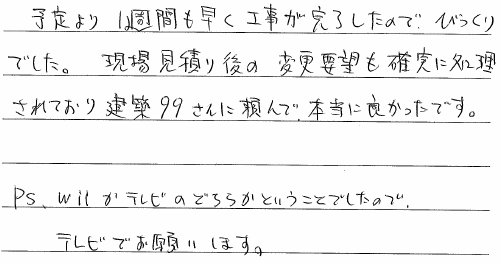 予定より1週間も早く工事が完了したので びっくり
でした。 現場見積り後の 変更要望も 確実に処理
されており 建築99さんに頼んで、本当に良かったです。
PS、wiiかテレビのどちらかということでしたので、
テレビでお願いします。